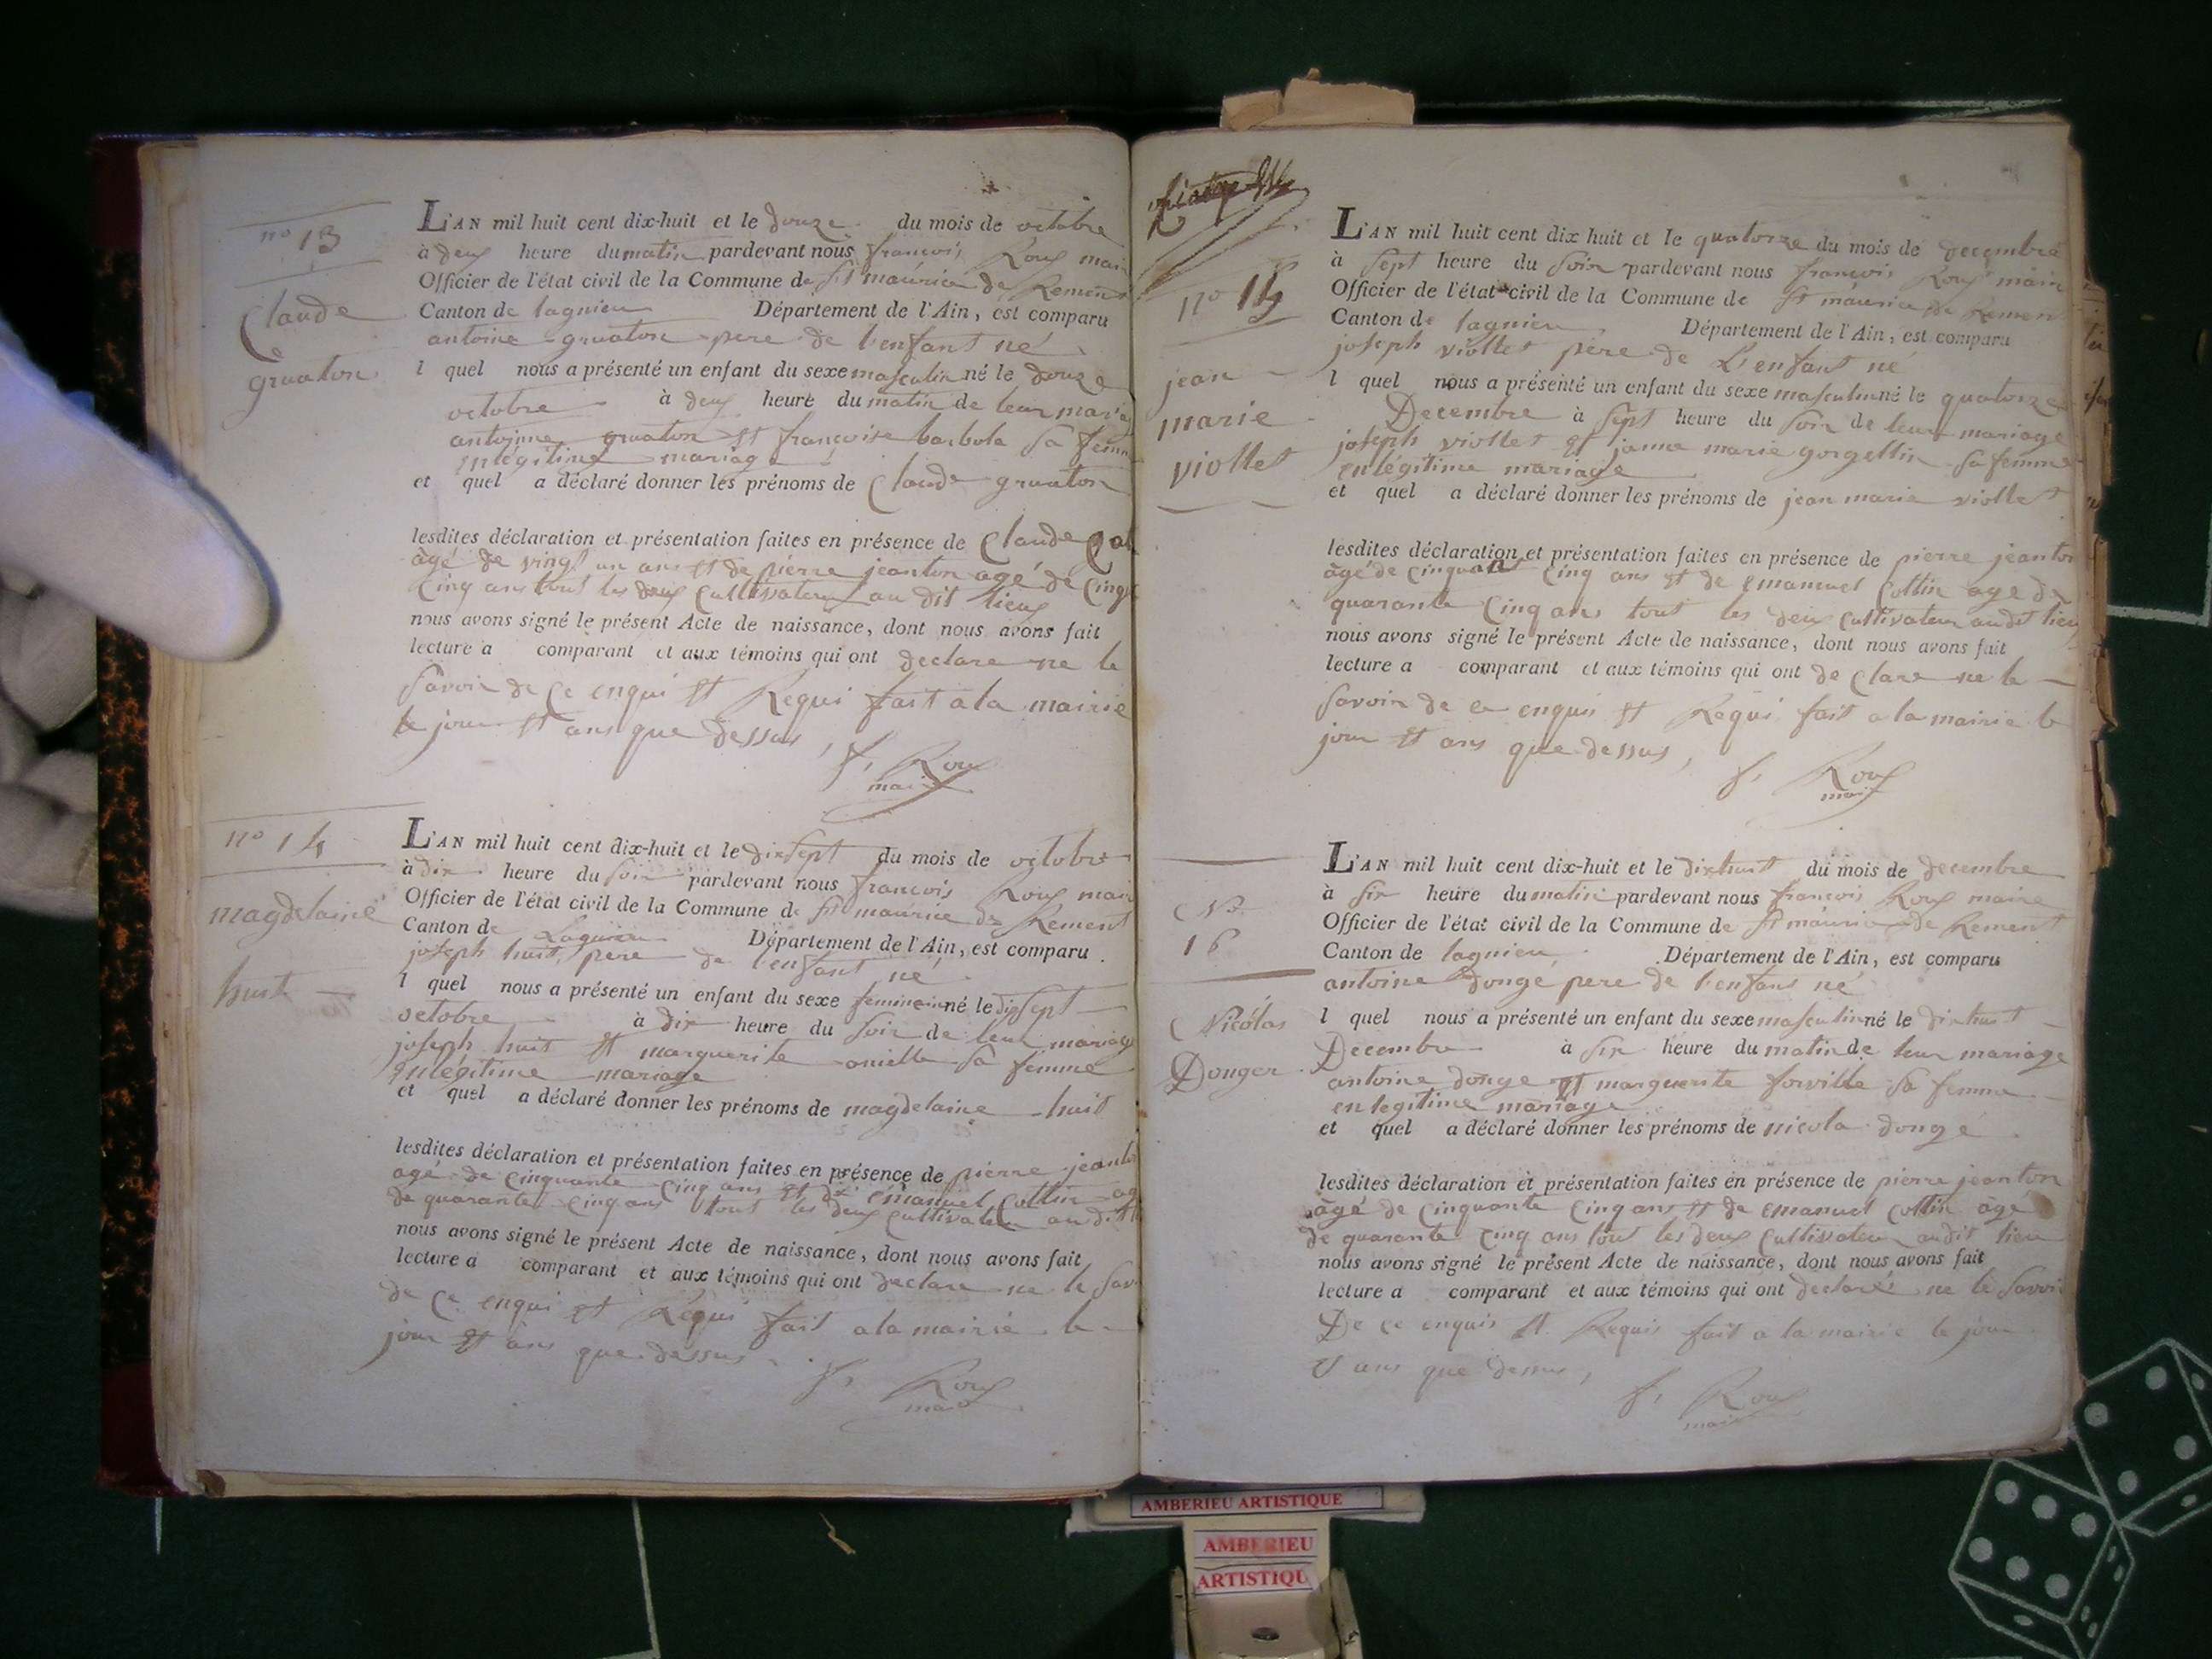 nº 13
Claude
gruaton
L'AN mil huit cent dix-huit et le douze du mois de octobre
à deux heure du matin pardevant nous françois Roux mai
Officier de l'état civil de la Commune de St maurice de Remens
Canton de lagnieu Département de l'Ain, est comparu
antoine gruaton pere de l'enfant né
l quel nous a présenté un enfant du sexe masculin né le douze
octobre à deux heure du matin de leur maria
antoinne gruaton et françoise barbola sa femm
en légitime mariage
et quel a déclaré donner les prénoms de Claude gruaton
lesdites déclaration et présentation faites en présence de Claude
âgé de vingt un ans et de pierre jeanton agé de Cinq
Cinq ans tout les deux Cultivateur au dit lieux
nous avons signé le présent Acte de naissance, dont nous avons fait
lecture a comparant et aux témoins qui ont declare ne le
savoir de Ce enqui et Requi fait a la mairie
le jour et ans que dessus,
f, Roux
mai
nº 14
magdelaine
huit
L'AN mil huit cent dix-huit et le dix sept du mois de octobre
à dix heure du soir pardevant nous françois Roux mai
Officier de l'état civil de la Commune de St maurice de Remens
Canton de Lagnieu Département de l'Ain, est comparu
joseph huit pere de l'enfant né
l quel nous a présenté un enfant du sexe feminain né le dix sept
octobre à dix heure du soir de leur mariage
joseph huit et marguerite sa femme
en légitime mariage
et quel a déclaré donner les prénoms de magdelaine huit
lesdites déclaration et présentation faites en présence de pierre jeanto
agé de cinquante cinq ans et de emanuel Collin ag
de quarante cinq ans tout les deux cultivateur au dit
nous avons signé le présent Acte de naissance, dont nous avons fait
lecture a comparant et aux témoins qui ont declare ne le sav
de Ce enqui et Requi fait a la mairie le
jour et ans que dessus
f, Roux
mai
nº 15
jean
marie
viollet
L'AN mil huit cent dix huit et le quatorze du mois de decembre
à sept heure du soir pardevant nous françois Roux mair
Officier de l'état civil de la Commune de St maurice de Remen
Canton de lagnieu Département de l'Ain, est comparu
joseph viollet père de L'enfant né
l quel nous a présenté un enfant du sexe masculin né le quatorze
Decembre à sept heure du soir de leur mariage
joseph viollet et janne marie gorgellin sa femme
en légitime mariage
et quel a déclaré donner les prénoms de jean marie viollet
lesdites déclaration et présentation faites en présence de pierre jeanton
âgé de cinquant cinq ans et de emanuel Collin age de
quarante Cinq ans tout les deux Cultivateur audit lieu
nous avons signé le présent Acte de naissance, dont nous avons fait
lecture a comparant et aux témoins qui ont de clare ne le
savoir de ce enquis et Requi fait a la mairie le
jour et ans que dessus,
f, Roux
mai
No
16
Nicolas
Donger
L'AN mil huit cent dix-huit et le dixhuit du mois de decembre
à six heure du matin pardevant nous françois Roux maire
Officier de l'état civil de la Commune de St maurice de Rement
Canton de lagnieu Département de l'Ain, est comparu
antoine donge pere de l'enfant né
l quel nous a présenté un enfant du sexe masculin né le dixhuit
Decembre à six heure du matin de leur mariage
antoine donge et marguerite forville sa femme
en legitime mariage
et quel a déclaré donner les prénoms de nicola donge
lesdites déclaration et présentation faites en présence de pierre jeanton
âgé de cinquante Cinq ans et de emanuel Collin âgé
de quarante Cinq ans tout les deux Cultivateur audit lieu
nous avons signé le présent Acte de naissance, dont nous avons fait
lecture a comparant et aux témoins qui ont declaré ne le savoir
De Ce enquis et Requis fait a la mairie le jour
et ans que dessus,
f, Roux
mai
AMBERIEU ARTISTIQUE
AMBERIEU
ARTISTIQU